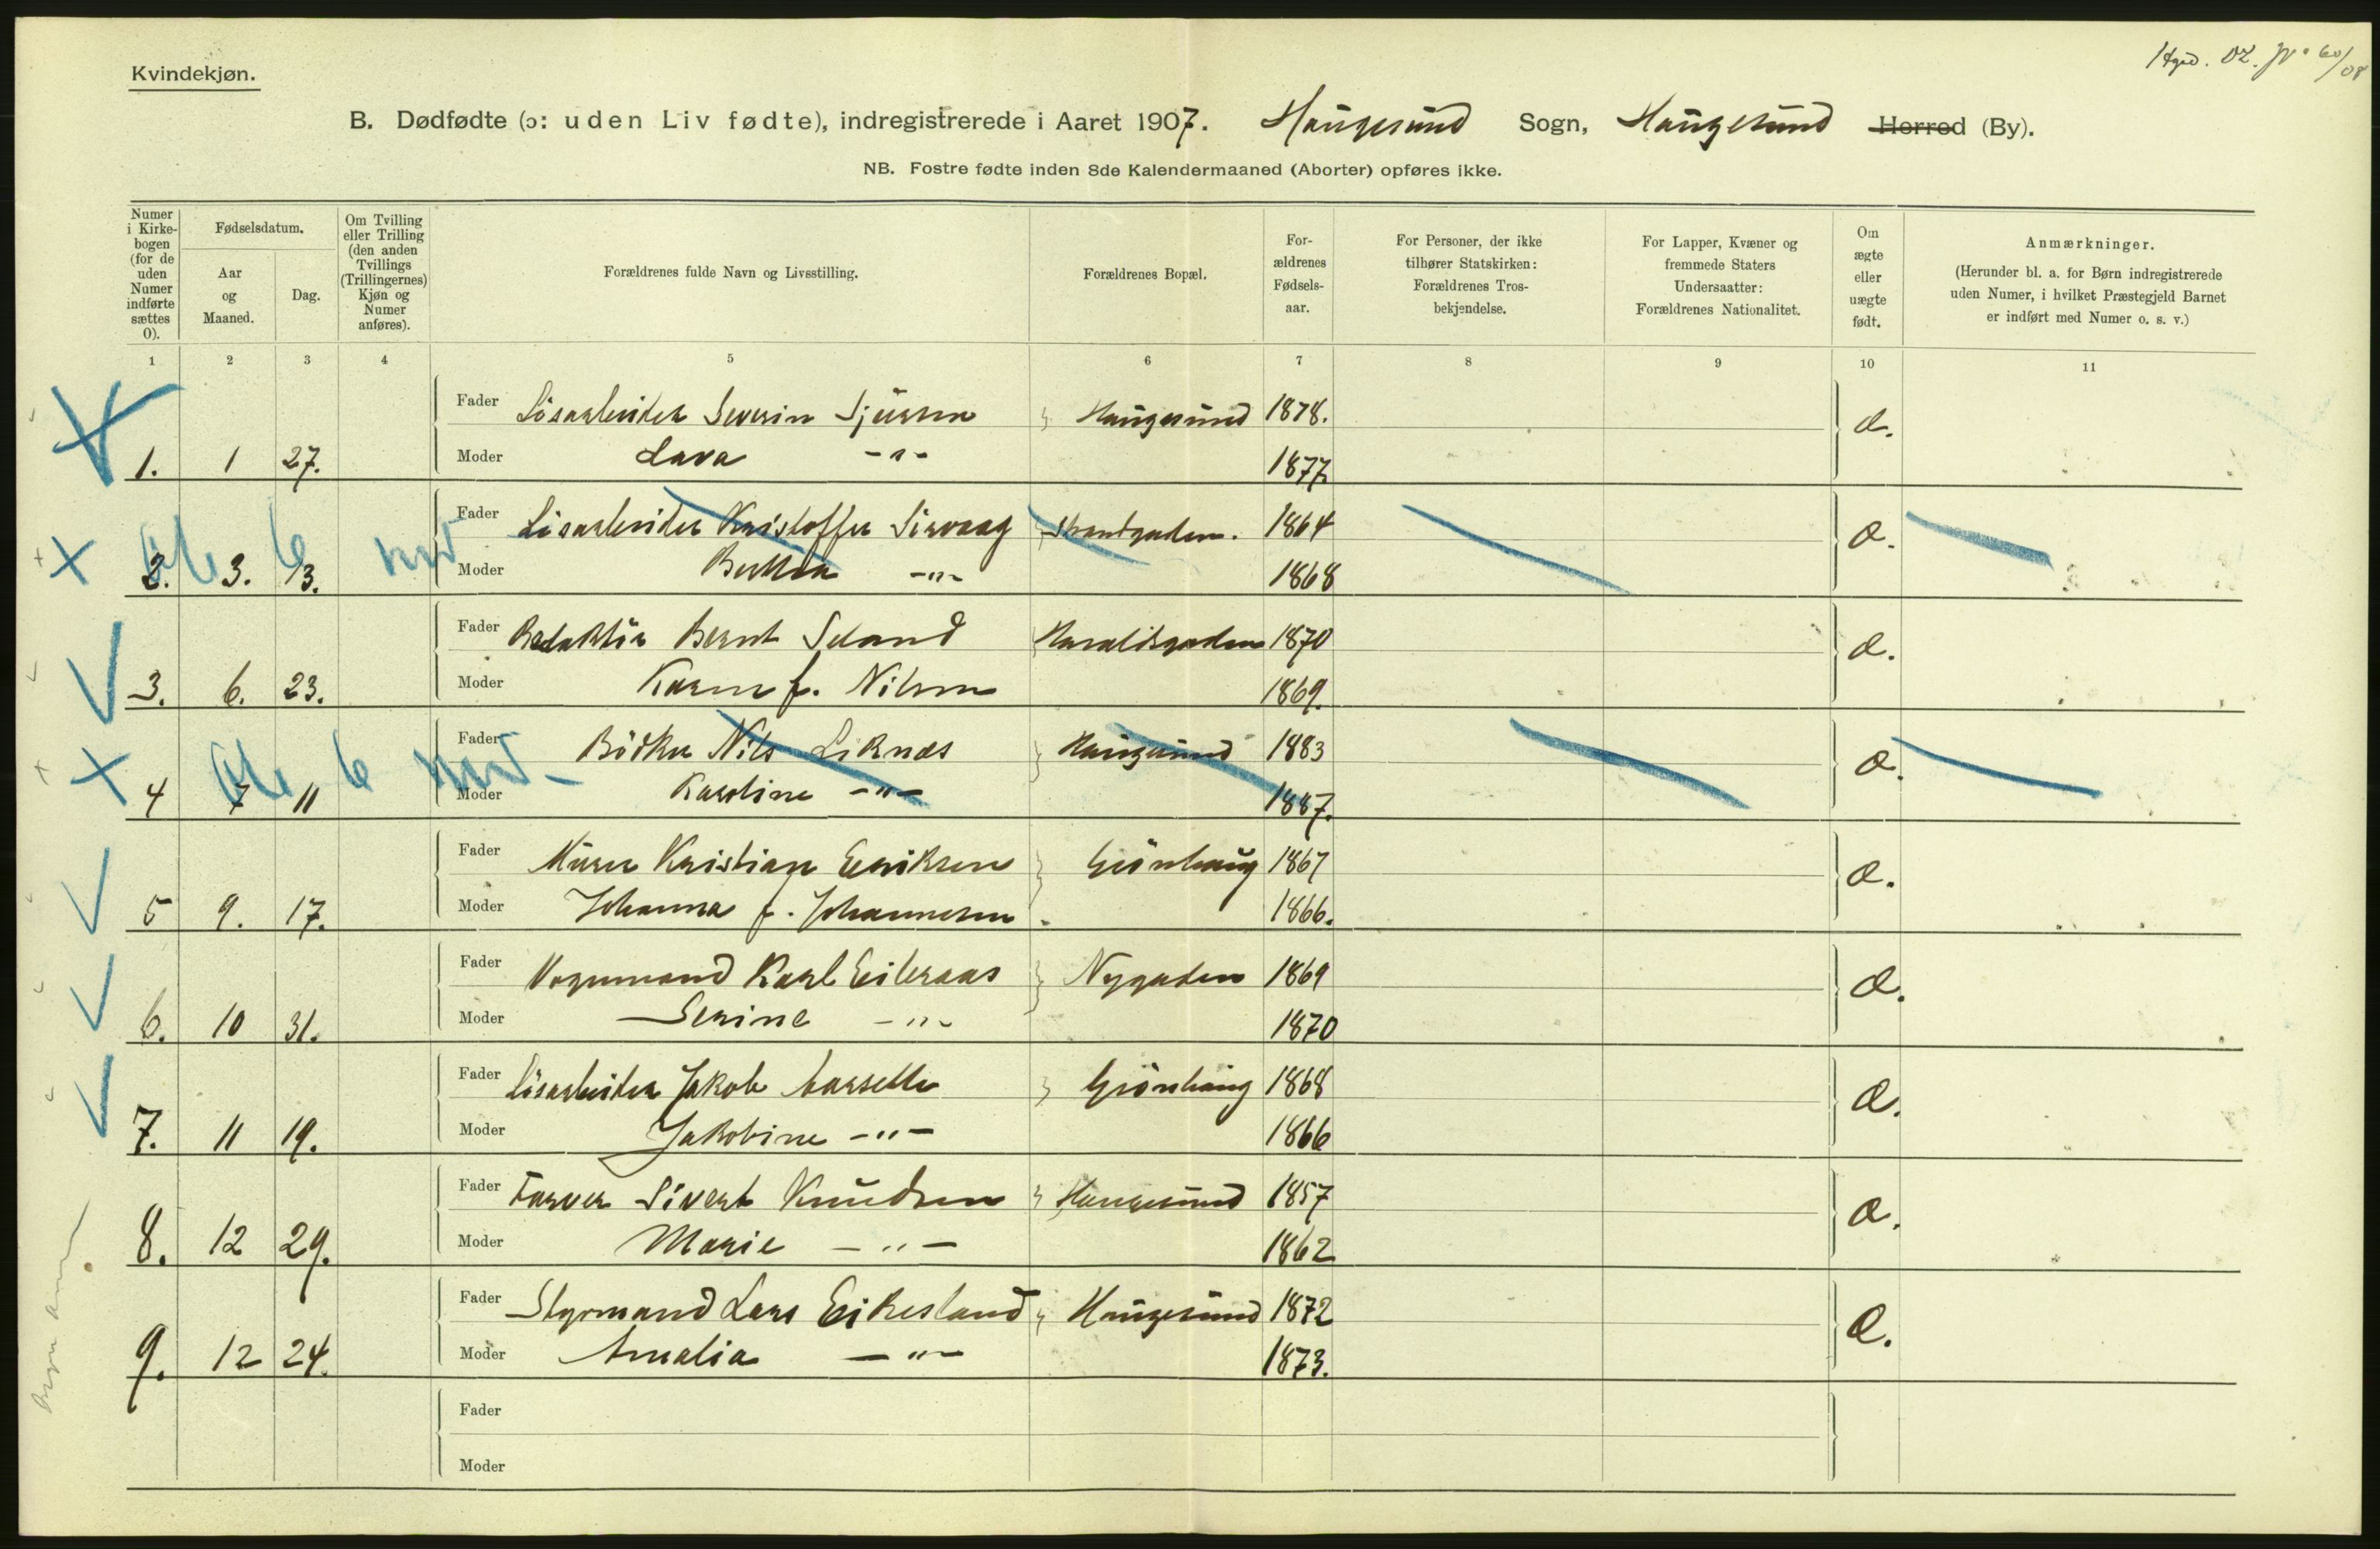 Kvindekjøn.
B. Dødfødte (ɔ: uden Liv fødte), indregistrerede i Aaret 1907. Haugesund Sogn, Haugesund Herred (By).
NB. Fostre fødte inden 8de Kalendermaaned (Aborter) opføres ikke.
Numer i Kirkebogen (for de uden Numer indførte sættes 0).
Fødselsdatum.
Aar og Maaned.
Dag.
Om Tvilling eller Trilling (den anden Tvillings (Trillingernes) Kjøn og Numer anføres).
Forældrenes fulde Navn og Livsstilling.
Forældrenes Bopæl.
Forældrenes Fødselsaar.
For Personer, der ikke tilhører Statskirken: Forældrenes Trosbekjendelse.
For Lapper, Kvæner og fremmede Staters Undersaatter: Forældrenes Nationalitet.
Om ægte eller uægte født.
Anmærkninger.
(Herunder bl. a. for Børn indregistrerede uden Numer, i hvilket Præstegjeld Barnet er indført med Numer o. s. v.)
1 2 3 4 5 6 7 8 9 10 11
Fader Løsarbeider Severin Sjursen Haugesund 1878.
1. 1 27. Moder Lava -"- 1877
Fader Løsarbeider Kristoffer Sirvaag Strandgaden. 1864
2. 3. 13. Moder Berthea -"- 1868
Fader Redaktør Bernt Seland Haraldsgaden 1870
3. 6. 23. Moder Karen f. Nilsen 1869.
Fader Bödker Nils Liknæs Haugesund 1883
4 7 11 Moder Karoline -"- 1887.
Fader Murer Kristian Eeriksen Grönhaug 1867
5 9. 17. Moder Johanna f. Johannesen 1866.
Fader Vognmand Karl Eileraas Nygaden 1869
6. 10 31. Moder Serine -"- 1870
Fader Løsarbeider Jakob Grönhaug 1868
7. 11 19. Moder Jakobine -"- 1866
Fader Farver Sivert Knudsen Haugesund 1857
8. 12 29. Moder Marie -"- 1862
Fader Styrmand Lars Eikesland Haugesund 1872
9. 12 24. Moder Amalia -"- 1873.
Fader
Moder